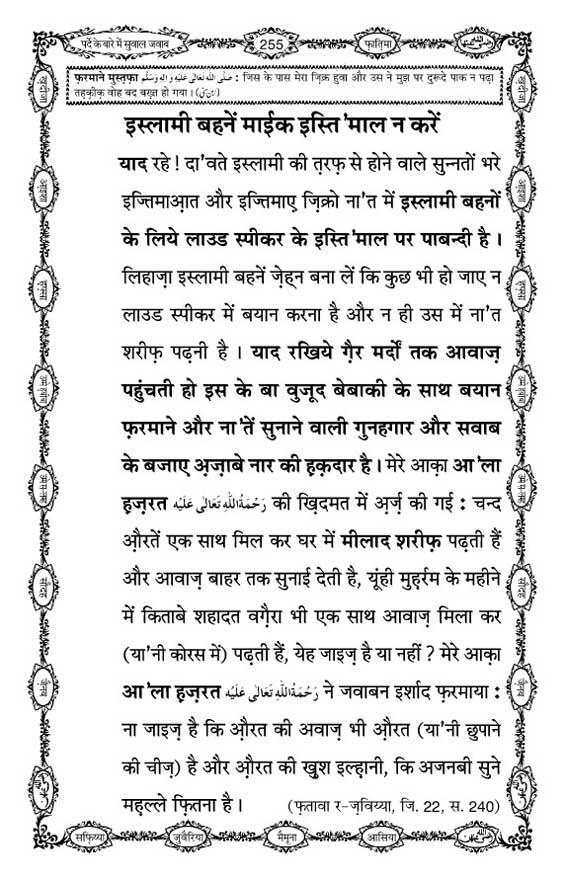 पर्दे के बारे में सुवाल जवाब
255
फ़ातिमा
फ़रमाने मुस्तफ़ा صَلَّى اللهُ تَعَالٰى عَلَيْهِ وَاٰلِهٖ وَسَلَّم : जिस के पास मेरा ज़िक्र हुवा और उस ने मुझ पर दुरूदे पाक न पढ़ा
तहक़ीक़ वोह बद बख़्त हो गया।
इस्लामी बहनें माईक इस्ति'माल न करें
याद रहे ! दा'वते इस्लामी की त़रफ़ से होने वाले सुन्नतों भरे
इज्तिमाआ़त और इज्तिमाए ज़िक्रो ना'त में इस्लामी बहनों
के लिये लाउड स्पीकर के इस्ति'माल पर पाबन्दी है।
लिहाज़ा इस्लामी बहनें ज़ेह्न बना लें कि कुछ भी हो जाए न
लाउड स्पीकर में बयान करना है और न ही उस में ना'त
शरीफ़ पढ़नी है। याद रखिये ग़ैर मर्दों तक आवाज़
पहुंचती हो इस के बा वुजूद बेबाकी के साथ बयान
फ़रमाने और ना'तें सुनाने वाली गुनहगार और सवाब
के बजाए अ़ज़ाबे नार की ह़क़दार है। मेरे आक़ा आ'ला
ह़ज़रत رَحْمَةُ اللهِ تَعَالٰى عَلَيْه की ख़िदमत में अ़र्ज़ की गई : चन्द
औ़रतें एक साथ मिल कर घर में मीलाद शरीफ़ पढ़ती हैं
और आवाज़ बाहर तक सुनाई देती है, यूंही मुह़र्रम के महीने
में किताबे शहादत वग़ैरा भी एक साथ आवाज़ मिला कर
(या'नी कोरस में) पढ़ती हैं, येह जाइज़ है या नहीं ? मेरे आक़ा
आ'ला ह़ज़रत رَحْمَةُ اللهِ تَعَالٰى عَلَيْه ने जवाबन इर्शाद फ़रमाया :
ना जाइज़ है कि औ़रत की अवाज़ भी औ़रत (या'नी छुपाने
की चीज़) है और औ़रत की ख़ुश इल्ह़ानी, कि अजनबी सुने
मह़ल्ले फ़ितना है।
(फ़तावा र-ज़विय्या, जि. 22, स. 240)
सफ़िय्या
जुवैरिया
मैमूना
आसिया